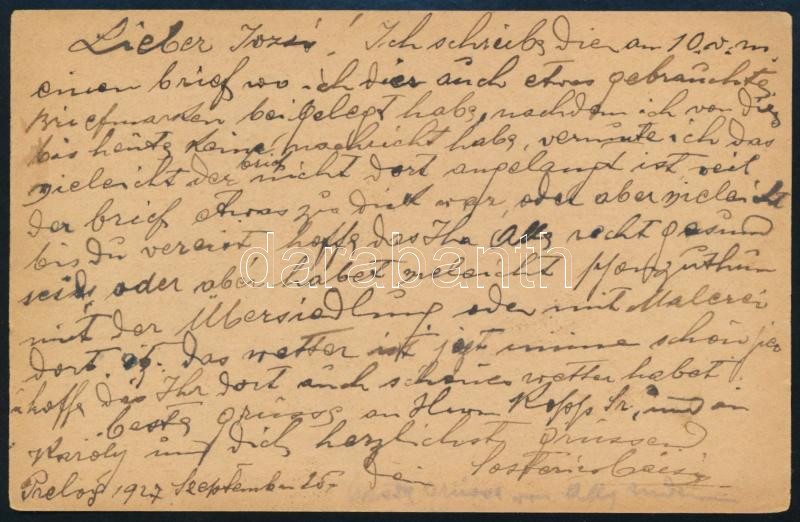 Lieber Jozsi! Ich schreibe dir am 10.v.m.
einen brief wo ich dier auch etwas gebrauchte
Briefmarken bei gelegt habe, nachdem ich von dier
bis heute keine nachricht habe, vermute ich das
vieleicht der brief nicht dort angelangt ist weil
der brief etwas zu dick war, oder aber vieleicht
bis du vereist, hoffe das Ihr Alle recht gesund
seids oder aber habet vieleicht
mit der Übersiedlung oder mit Malerei
dort. das wetter ist jezt imme schön
hoffe das Ihr dort auch schönes wetter habet.
beste grüsse an Herrn Kopp Sr, und an
Karoly und dich herzlichst grüssend
Prelog 1927 September 25. dein
darabanth